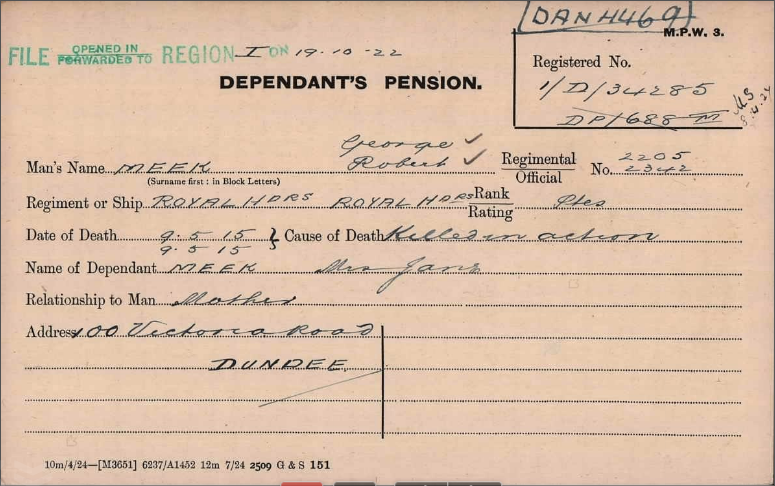 DAN4469
M.P.W. 3.
FILE OPENED IN FORWARDED TO REGION I ON 19-10-22
Registered No.
DEPENDANT'S PENSION.
1/D/34285
DP1688 M
George ✓
Man's Name MEEK Robert ✓ Regimental Official No. 2205 2342
(Surname first: in Block Letters)
Regiment or Ship ROYAL HDRS ROYAL HDRS Rank Rating Ptes
Date of Death 9.5.15 } Cause of Death Killed in action
9.5.15
Name of Dependant MEEK Mrs Jane
Relationship to Man Mother
Address 100 Victoria Road
DUNDEE.
10m/4/24—[M3651] 6237/A1452 12m 7/24 2509 G & S 151